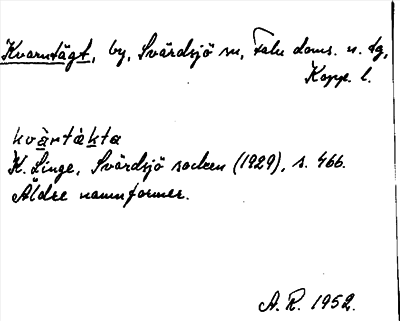 Kvarntägt, by, Svärdsjö sn, Falu doms. n. tg,
Kopp. l.
kvàrntäkta
K. Linge, Svärdsjö socken (1929), s. 466.
Äldre namnformer.
A. R. 1952.